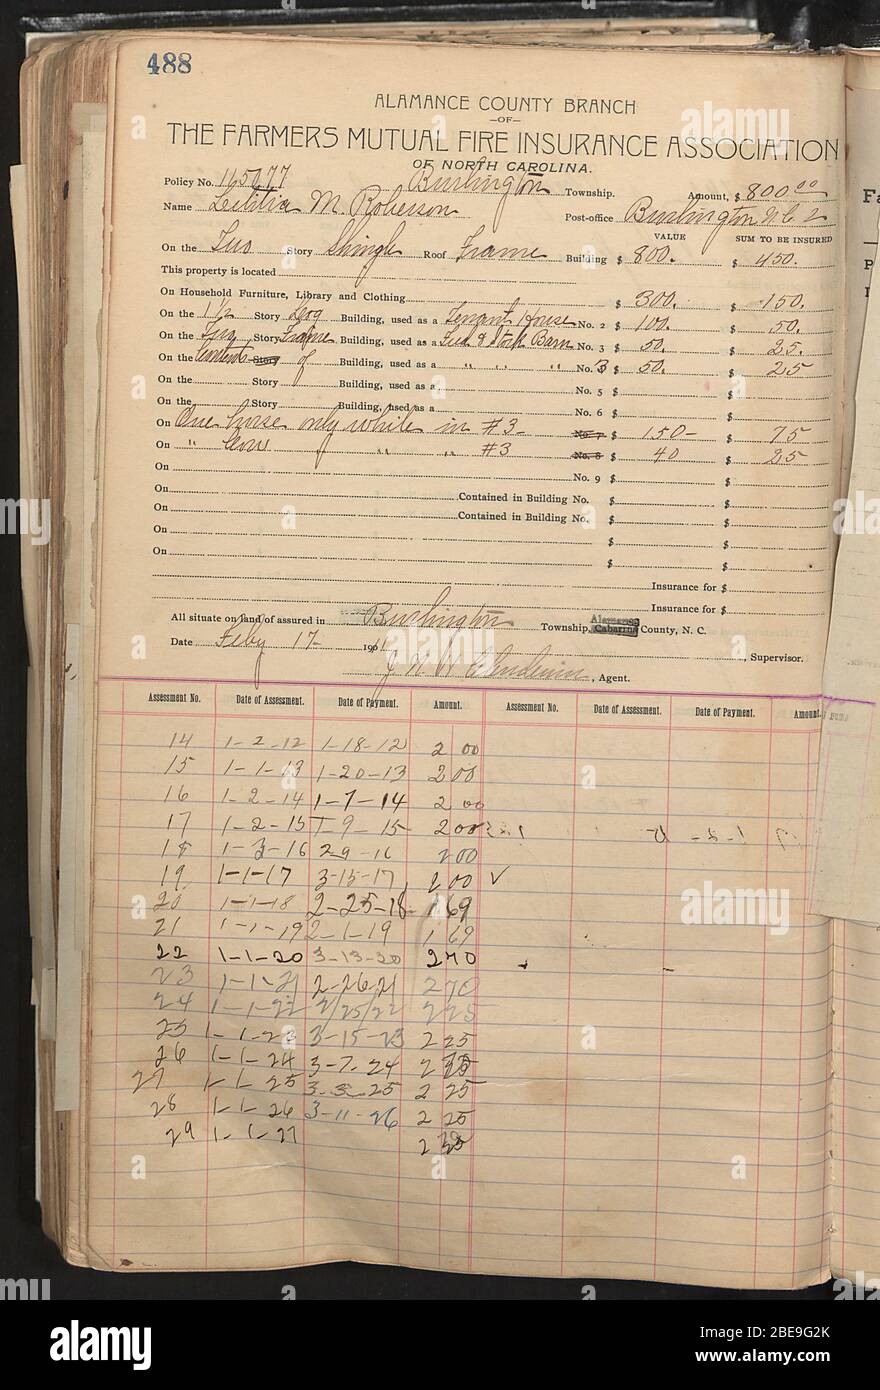 488
ALAMANCE COUNTY BRANCH
—OF—
THE FARMERS MUTUAL FIRE INSURANCE ASSOCIATION
OF NORTH CAROLINA.
Policy No. 115077 Burlington Township. Amount, $ 800 00
Name Letitia M. Roberson Post-office Burlington N.C. 2
VALUE SUM TO BE INSURED
On the Two Story Shingle Roof Frame Building $ 800. $ 450.
This property is located
On Household Furniture, Library and Clothing $ 300. $ 150.
On the 1 1/2 Story Log Building, used as a Tenant House No. 2 $ 100. $ 50.
On the Two Story Frame Building, used as a Feed & Stock Barn No. 3 $ 50. $ 25.
On the Contents Story of Building, used as a " " " No. 3 $ 50. $ 25
On the Story Building, used as a No. 5 $ $
On the Story Building, used as a No. 6 $ $
On One horse only while in #3 No. 7 $ 150- $ 75
On " Cow " " #3 No. 8 $ 40 $ 25
On No. 9 $ $
On Contained in Building No. $ $
On Contained in Building No. $ $
On $ $
On $ $
Insurance for $
Insurance for $
All situate on land of assured in Burlington Township, Alamance Cabarrus County, N. C.
Date Feby 17 1911 , Supervisor.
, Agent.
Assessment No. Date of Assessment. Date of Payment. Amount. Assessment No. Date of Assessment. Date of Payment. Amount.
14 1-2-12 1-18-12 2 00
15 1-1-13 1-20-13 2 00
16 1-2-14 1-7-14 2 00
17 1-2-15 1-9-15 2 00
18 1-3-16 2-9-16 2 00
19 1-1-17 3-15-17 2 00 ✓
20 1-1-18 2-25-18 1 69
21 1-1-19 2-1-19 1 69
22 1-1-20 3-13-20 2 70
23 1-1-21 2-26-21 2 70
24 1-1-22 2/25/22 2 25
25 1-1-23 3-15-23 2 25
26 1-1-24 3-7-24 2 25
27 1-1-25 3-3-25 2 25
28 1-1-26 3-11-26 2 25
29 1-1-27 2
alamy
Image ID: 2BE9G2K
www.alamy.com